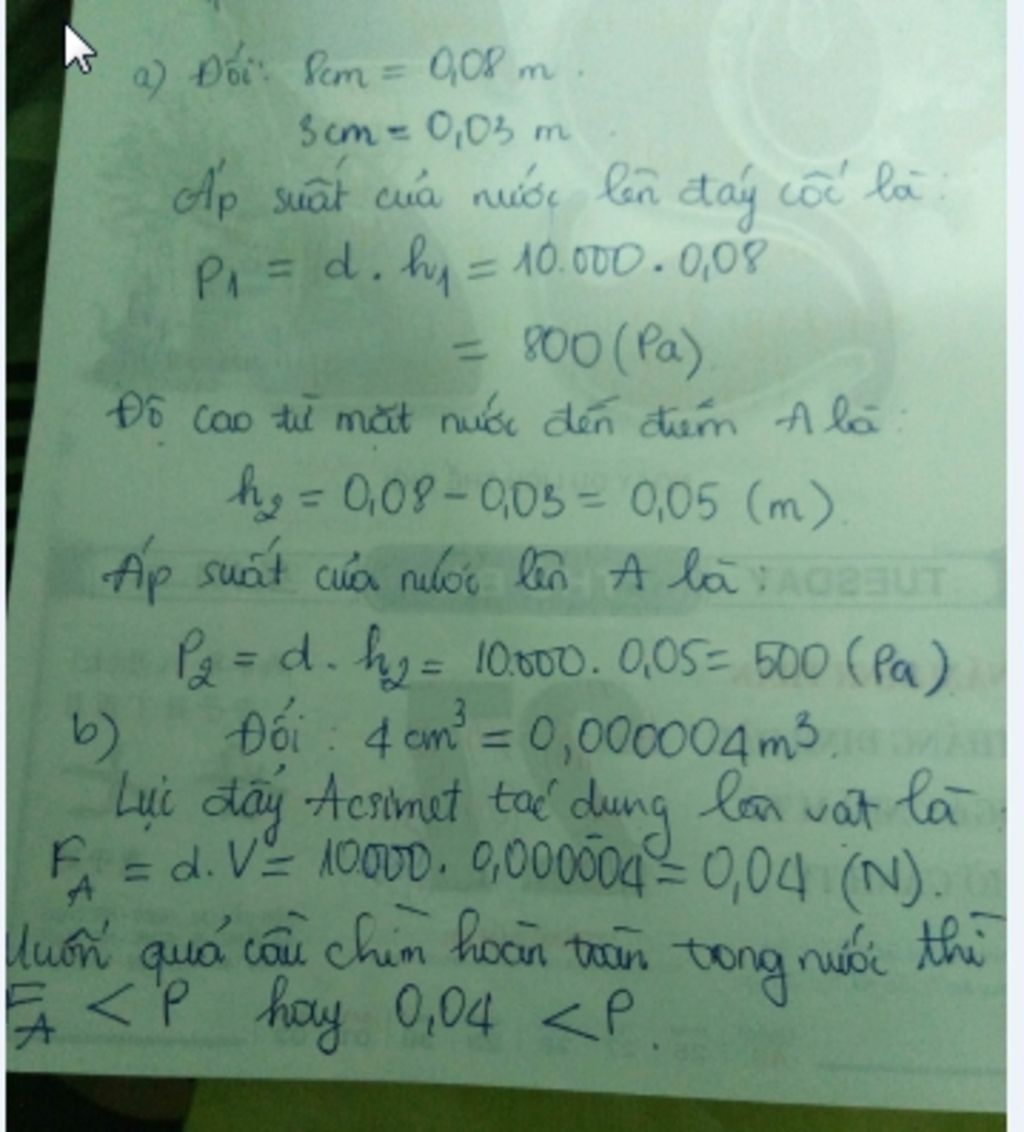 a) Đổi: 8cm = 0,08 m.
3cm = 0,03 m.
Áp suất của nước lên đáy cốc là:
P₁ = d . h₁ = 10.000 . 0,08
= 800 (Pa)
Độ cao từ mặt nước đến điểm A là:
h₂ = 0,08 - 0,03 = 0,05 (m).
Áp suất của nước lên A là:
TUESDAY
P₂ = d . h₂ = 10.000 . 0,05 = 500 (Pa)
b) Đổi: 4 cm³ = 0,000004 m³.
Lực đẩy Acsimet tác dụng lên vật là
F_A = d. V = 10.000. 0,000004 = 0,04 (N).
Muốn quả cầu chìm hoàn toàn trong nước thì
F_A < P hay 0,04 < P.